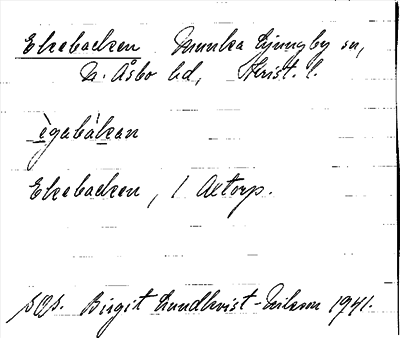 Ekebacken Munka Ljungby sn,
N. Åsbo hd, Krist. l.
ègabàkan
Ekebacken, 1 Avtorp.
SOS. Birgit Lundkvist-Nilsson 1941.